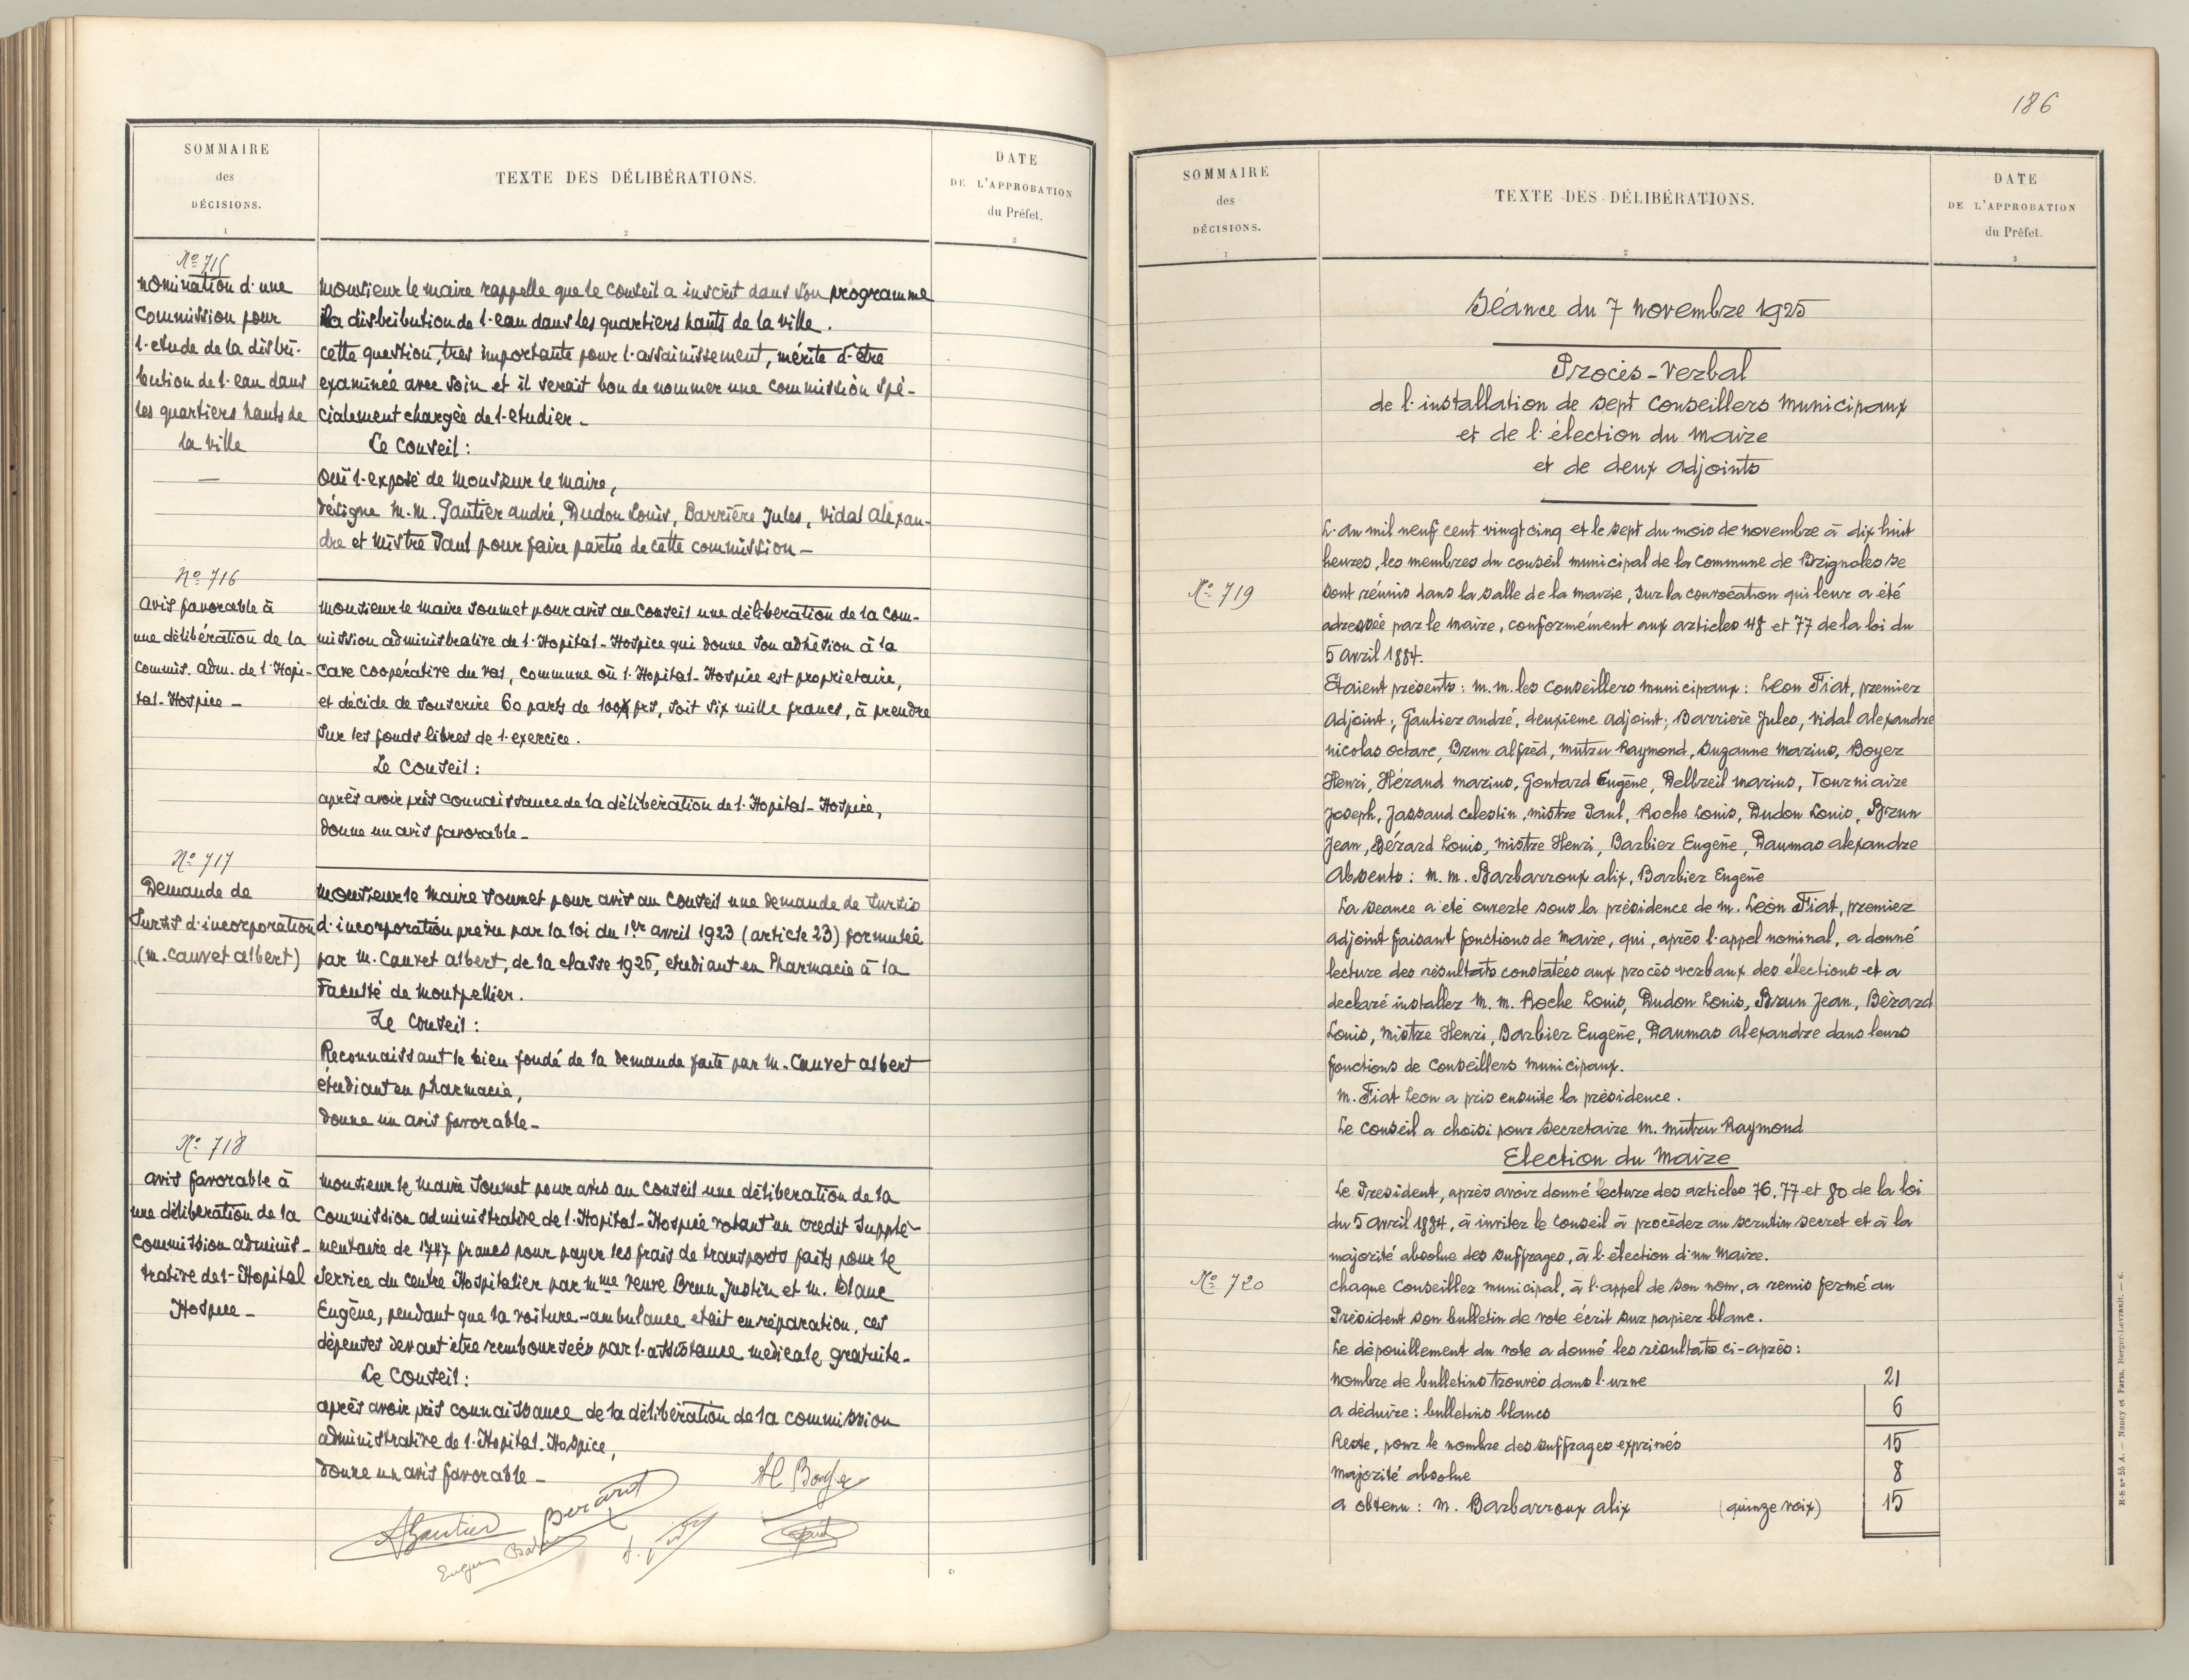 SOMMAIRE
des
DÉCISIONS.
1
TEXTE DES DÉLIBÉRATIONS.
2
DATE
DE L'APPROBATION
du Préfet.
3
No 715
nomination d'une
Commission pour
l'etude de la distri-
bution de l'eau dans
les quartiers hauts de
la ville
Monsieur le Maire rappelle que le Conseil a inscrit dans son programme
la distribution de l'eau dans les quartiers hauts de la ville.
cette question, très importante pour l'assainissement, mérite d'être
examinée avec soin et il serait bon de nommer une commission spé-
cialement chargée de l'etudier_
Le Conseil:
Ouï l'exposé de Monsieur le Maire,
désigne M.M. Gautier andré, Dudon Louis, Barrière Jules, Vidal Alexan-
dre et Mistre Paul pour faire partie de cette commission_
No 716
avis favorable à
une délibération de la
commis. adm. de l'Hopi-
tal-Hospice_
Monsieur le Maire soumet pour avis au Conseil une délibération de la Com-
mission administrative de l'Hopital-Hospice qui donne son adhésion à la
Cave Coopérative du Val, Commune où l'Hopital-Hospice est propriétaire,
et décide de souscrire 60 parts de 100 frs, soit six mille francs, à prendre
sur les fonds libres de l'exercice.
Le Conseil:
après avoir pris connaissance de la délibération de l'Hopital-Hospice,
donne un avis favorable_
No 717
Demande de
Sursis d'incorporation
(M. Cauvet albert)
Monsieur le Maire soumet pour avis au Conseil une demande de sursis
d'incorporation prévu par la loi du 1er avril 1923 (article 23) formulée
par M. Cauvet albert, de la classe 1925, etudiant en Pharmacie à la
Faculté de Montpellier.
Le Conseil:
Reconnaissant le bien fondé de la demande faite par M. Cauvet albert
étudiant en pharmacie,
donne un avis favorable_
No 718
avis favorable à
une délibération de la
Commission adminis-
trative de l'Hopital
Hospice_
Monsieur le Maire soumet pour avis au Conseil une délibération de la
Commission administrative de l'Hopital-Hospice votant un credit supplé-
mentaire de 1747 francs pour payer les frais de transports faits pour le
service du centre Hospitalier par Mme veuve Brun Justin et M. Blanc
Eugène, pendant que la voiture-ambulance etait en réparation, ces
dépenses devant être remboursées par l'assistance médicale gratuite_
Le Conseil:
après avoir pris connaissance de la délibération de la commission
administrative de l'Hopital-Hospice,
donne un avis favorable_
H. Boyer
Berard
AGautier
186
SOMMAIRE
des
DÉCISIONS.
1
TEXTE DES DÉLIBÉRATIONS.
2
DATE
DE L'APPROBATION
du Préfet.
3
Séance du 7 novembre 1925
Procès-Verbal
de l'installation de sept Conseillers Municipaux
et de l'élection du Maire
et de deux adjoints
No 719
L'an mil neuf cent vingt cinq et le sept du mois de novembre à dix huit
heures, les membres du conseil municipal de la Commune de Brignoles se
sont réunis dans la salle de la mairie, sur la convocation qui leur a été
adressée par le maire, conformément aux articles 48 et 77 de la loi du
5 avril 1884.
Etaient présents: M.M. les Conseillers municipaux: Leon Fiat, premier
adjoint; Gautier andré, deuxième adjoint; Barrière Jules, Vidal alexandre
nicolas octave, Brun alfred, Mutru Raymond, Suzanne Marius, Boyer
Henri, Héraud Marius, Gontard Eugène, Delbreil Marius, Tourniaire
Joseph, Jassaud Celestin, Mistre Paul, Roche Louis, Dudon Louis, Brun
Jean, Bérard Louis, Mistre Henri, Barbier Eugène, Daumas alexandre
Absents: M.M. Barbarroux alix, Barbier Eugène
La seance a été ouverte sous la présidence de M. Léon Fiat, premier
adjoint faisant fonctions de Maire, qui, après l'appel nominal, a donné
lecture des résultats constatées aux procès verbaux des élections et a
declaré installer M.M. Roche Louis, Dudon Louis, Brun Jean, Bérard
Louis, Mistre Henri, Barbier Eugène, Daumas alexandre dans leurs
fonctions de Conseillers municipaux.
M. Fiat Leon a pris ensuite la présidence.
Le Conseil a choisi pour Secretaire M. Mutru Raymond
Election du Maire
No 720
Le President, après avoir donné lecture des articles 76, 77 et 80 de la loi
du 5 avril 1884, à inviter le Conseil à procéder au scrutin secret et à la
majorité absolue des suffrages, à l'élection d'un Maire.
chaque Conseiller municipal, à l'appel de son nom, a remis fermé au
Président son bulletin de vote écrit sur papier blanc.
Le dépouillement du vote a donné les résultats ci-après:
nombre de bulletins trouvés dans l'urne 21
a déduire: bulletins blancs 6
Reste, pour le nombre des suffrages exprimés 15
majorité absolue 8
a obtenu: M. Barbarroux alix (quinze voix) 15
R·S no 55 A. — Nancy et Paris, Berger-Levrault. — 6.